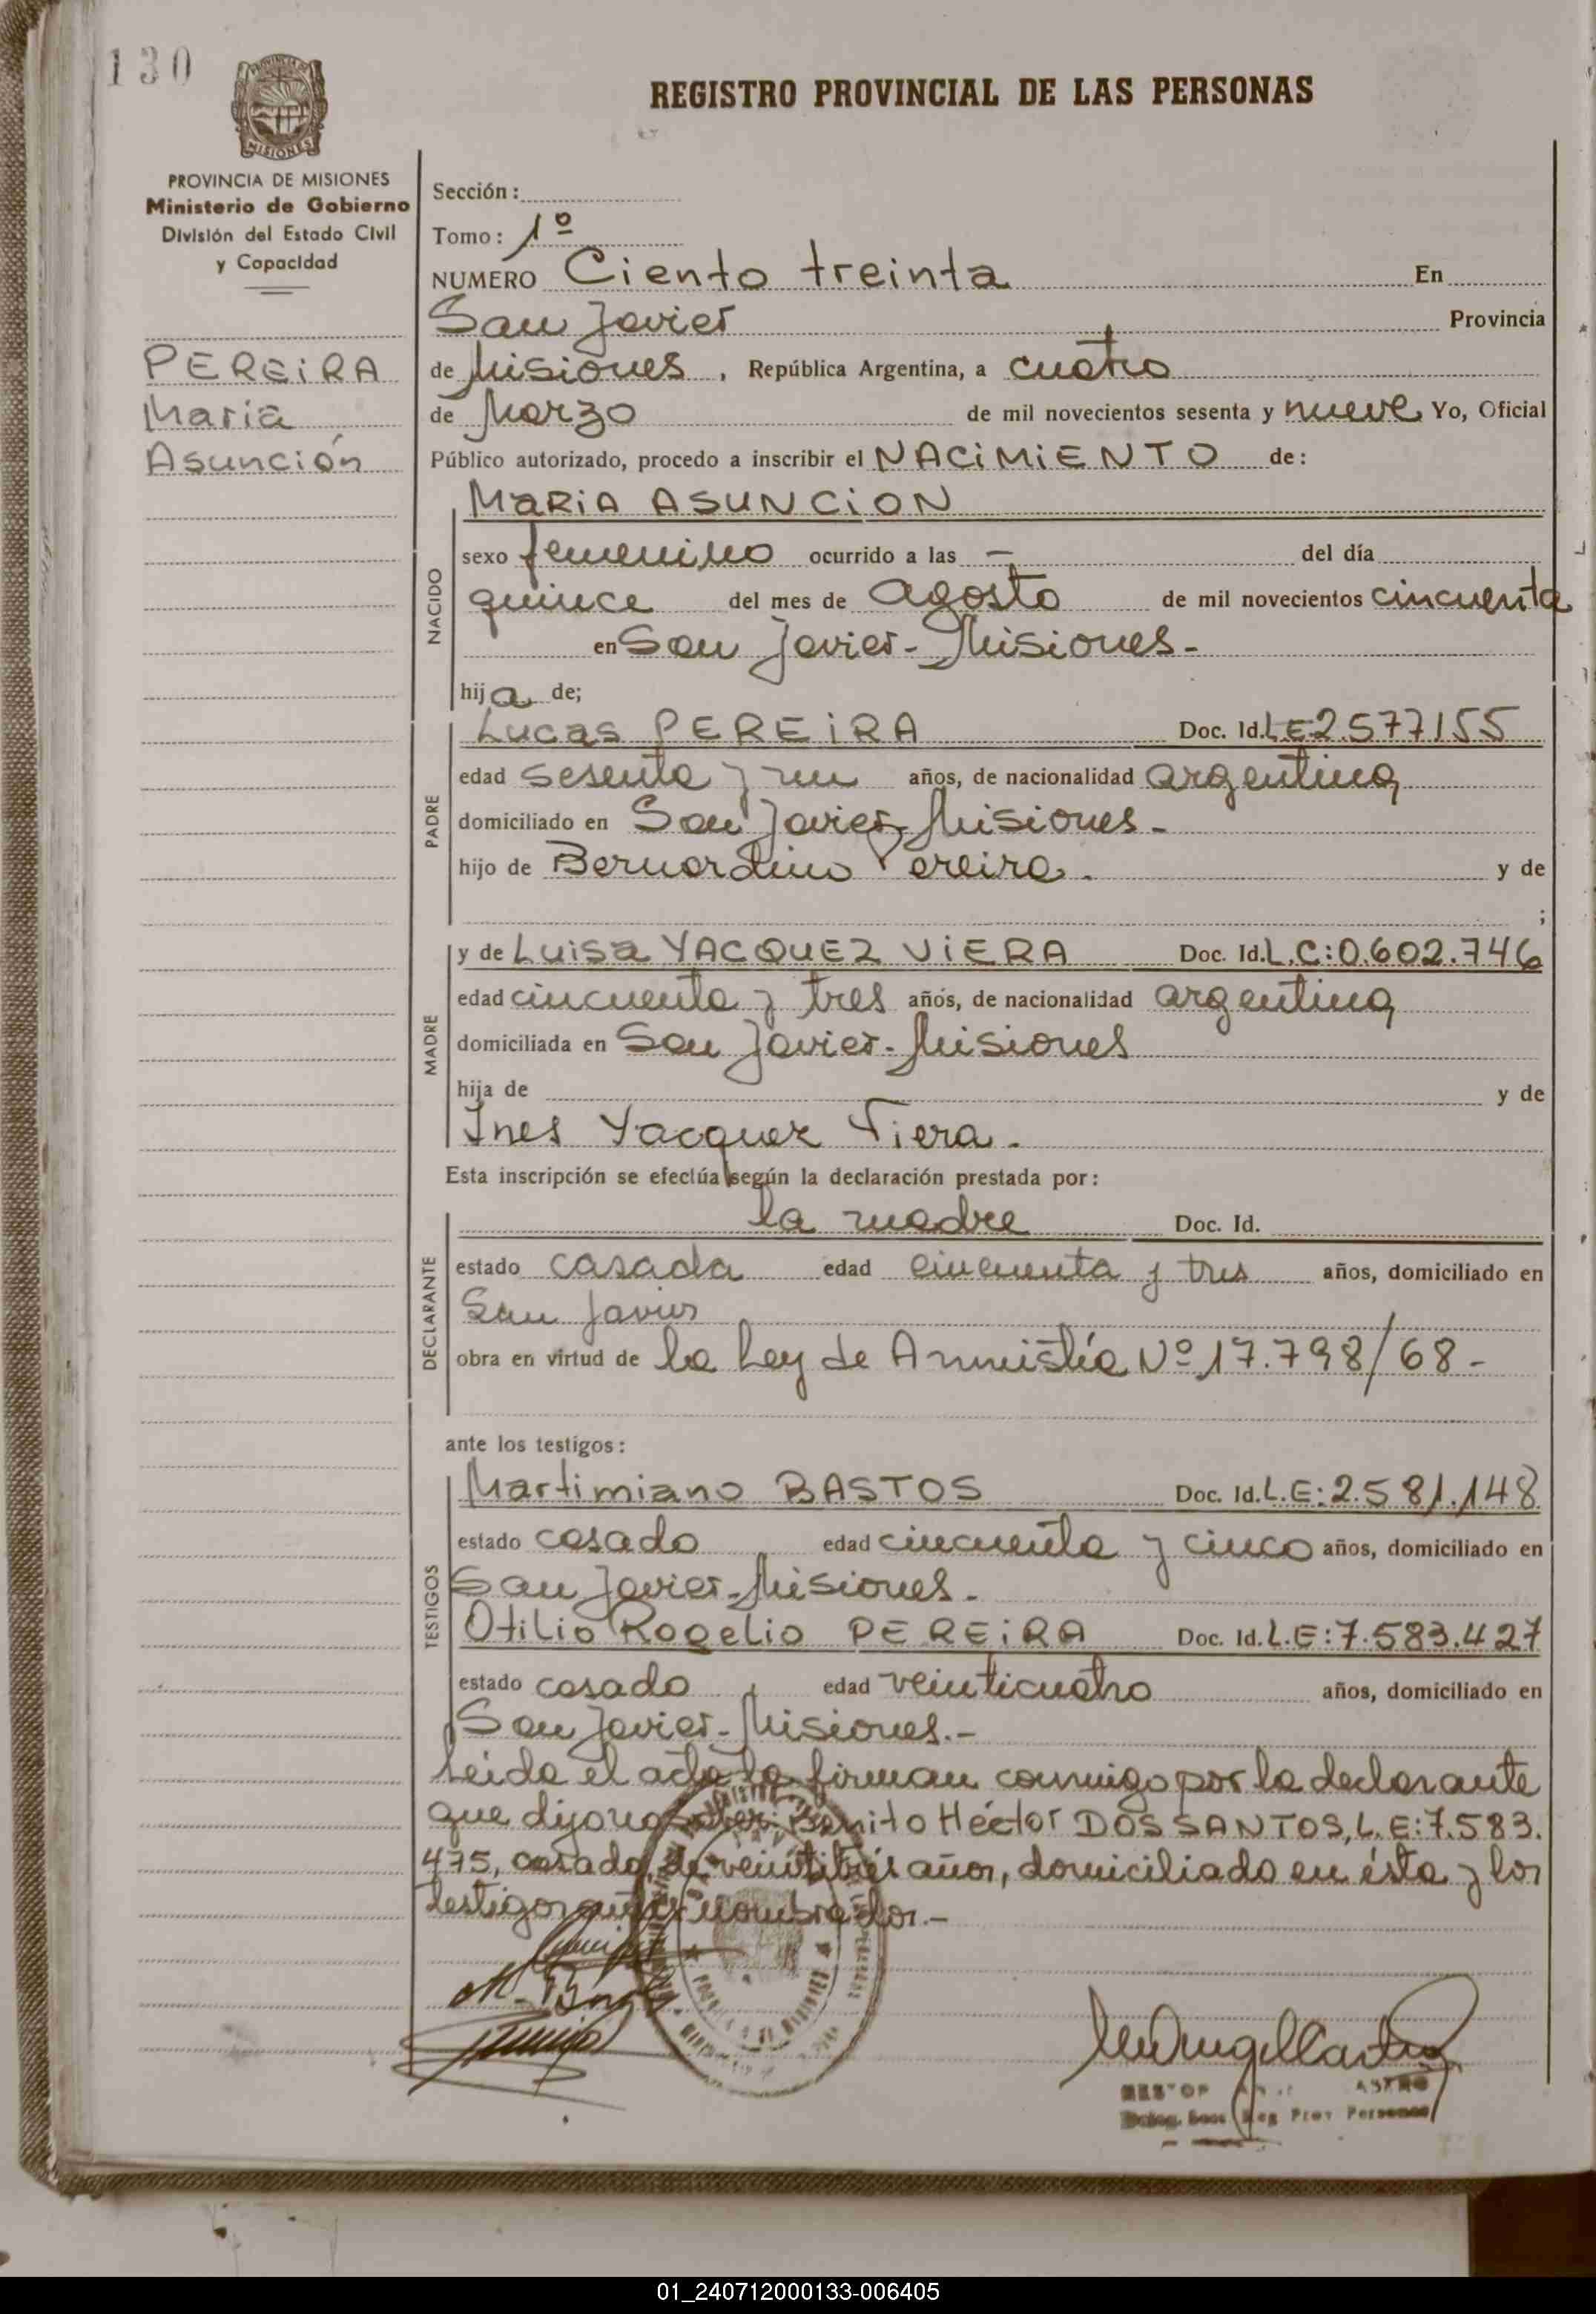 130
REGISTRO PROVINCIAL DE LAS PERSONAS
PROVINCIA DE MISIONES
MISIONES
PROVINCIA DE MISIONES
Ministerio de Gobierno
División del Estado Civil
y Capacidad
PEREiRA
Maria
Asunción
Sección:
Tomo: 1º
NUMERO Ciento treinta En
San Javier Provincia
de Misiones, República Argentina, a cuatro
de Marzo de mil novecientos sesenta y nueve Yo, Oficial
Público autorizado, procedo a inscribir el NACiMiENTO de:
NACIDO
MaRiA ASUNCiON
sexo femenino ocurrido a las — del día
quince del mes de agosto de mil novecientos cincuenta
en San Javier-Misiones-
hija de;
PADRE
Lucas PEREiRA Doc. Id. LE2577155
edad sesenta y un años, de nacionalidad argentina
domiciliado en San Javier-Misiones-
hijo de Bernardino Pereira. y de
;
MADRE
y de Luisa YACQUEZ ViERA Doc. Id. L.C:0.602.746
edad cincuenta y tres años, de nacionalidad argentina
domiciliada en San Javier-Misiones
hija de y de
Ines Yacquez Viera.
Esta inscripción se efectúa según la declaración prestada por:
DECLARANTE
la madre Doc. Id.
estado casada edad cincuenta y tres años, domiciliado en
San Javier
obra en virtud de la Ley de Amnistía Nº 17.798/68-
ante los testigos:
TESTIGOS
Martimiano BASTOS Doc. Id. L.E:2.581.148
estado casado edad cincuenta y cinco años, domiciliado en
San Javier-Misiones-
Otilio Rogelio PEREiRA Doc. Id. L.E:7.583.427
estado casado edad veinticuatro años, domiciliado en
San Javier-Misiones.-
Leida el acta la firman conmigo por la declarante
que dijo no saber: Benito Héctor DOS SANTOS, L.E:7.583.
475, casado, de veintitrés años, domiciliado en ésta y los
testigos nombrados.-
Reg Prov Personas
01_240712000133-006405